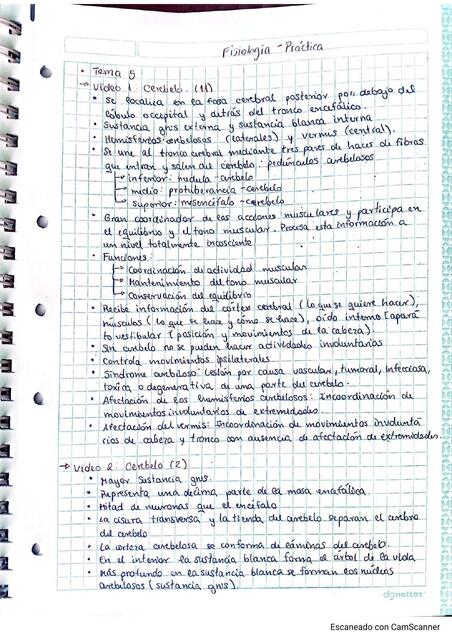 Fisiología - Práctica
• Tema 5
→ Video 1 Cerebelo. (1)
• Se localiza en la fosa cerebral posterior por debajo del
lóbulo occipital y detrás del tronco encefálico.
• Sustancia gris externa y sustancia blanca interna
• Hemisferios cerebelosos (laterales) y vermis (central).
• Se une al tronco cerebral mediante tres pares de haces de fibras
que entran y salen del cerebelo: pedúnculos cerebelosos
→ inferior: médula - cerebelo
→ medio: protuberancia - cerebelo
→ superior: mesencéfalo - cerebelo
• Gran coordinador de las acciones musculares y participa en
el equilibrio y el tono muscular. Procesa esta información a
un nivel totalmente inconsciente
• Funciones:
→ Coordinación de actividad muscular
→ Mantenimiento del tono muscular
→ Conservación del equilibrio
• Recibe información del córtex cerebral (lo que se quiere hacer),
músculos (lo que se hace y cómo se hace), oído interno [apara
to vestibular (posición y movimientos de la cabeza).
• Sin cerebelo no se pueden hacer actividades involuntarias
• Controla movimientos ipsilaterales
• Síndrome cerebeloso: Lesión por causa vascular, tumoral, infecciosa,
tóxica o degenerativa de una parte del cerebelo.
• Afectación de los hemisferios cerebelosos: Incoordinación de
movimientos involuntarios de extremidades.
• Afectación del vermis: Incoordinación de movimientos involunta
rios de cabeza y tronco con ausencia de afectación de extremidades.
→ Video 2: Cerebelo (2)
• Mayor sustancia gris.
• Representa una décima parte de la masa encefálica.
• Mitad de neuronas que el encéfalo
• La cisura transversa y la tienda del cerebelo separan el cerebro
del cerebelo
• La corteza cerebelosa se conforma de láminas del cerebelo.
• En el interior la sustancia blanca forma el árbol de la vida
• Más profundo en la sustancia blanca se forman los núcleos
cerebelosos (sustancia gris).
Escaneado con CamScanner